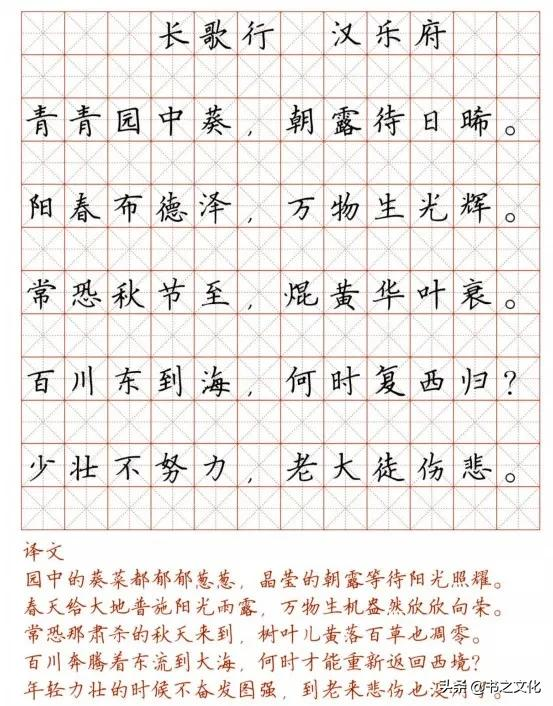 长歌行 汉乐府
青青园中葵，朝露待日晞。
阳春布德泽，万物生光辉。
常恐秋节至，焜黄华叶衰。
百川东到海，何时复西归？
少壮不努力，老大徒伤悲。
译文
园中的葵菜都郁郁葱葱，晶莹的朝露等待阳光照耀。
春天给大地普施阳光雨露，万物生机盎然欣欣向荣。
常恐那肃杀的秋天来到，树叶儿黄落百草也凋零。
百川奔腾着东流到大海，何时才能重新返回西境？
年轻力壮的时候不奋发图强，到老来悲伤也没
头条 @书之文化